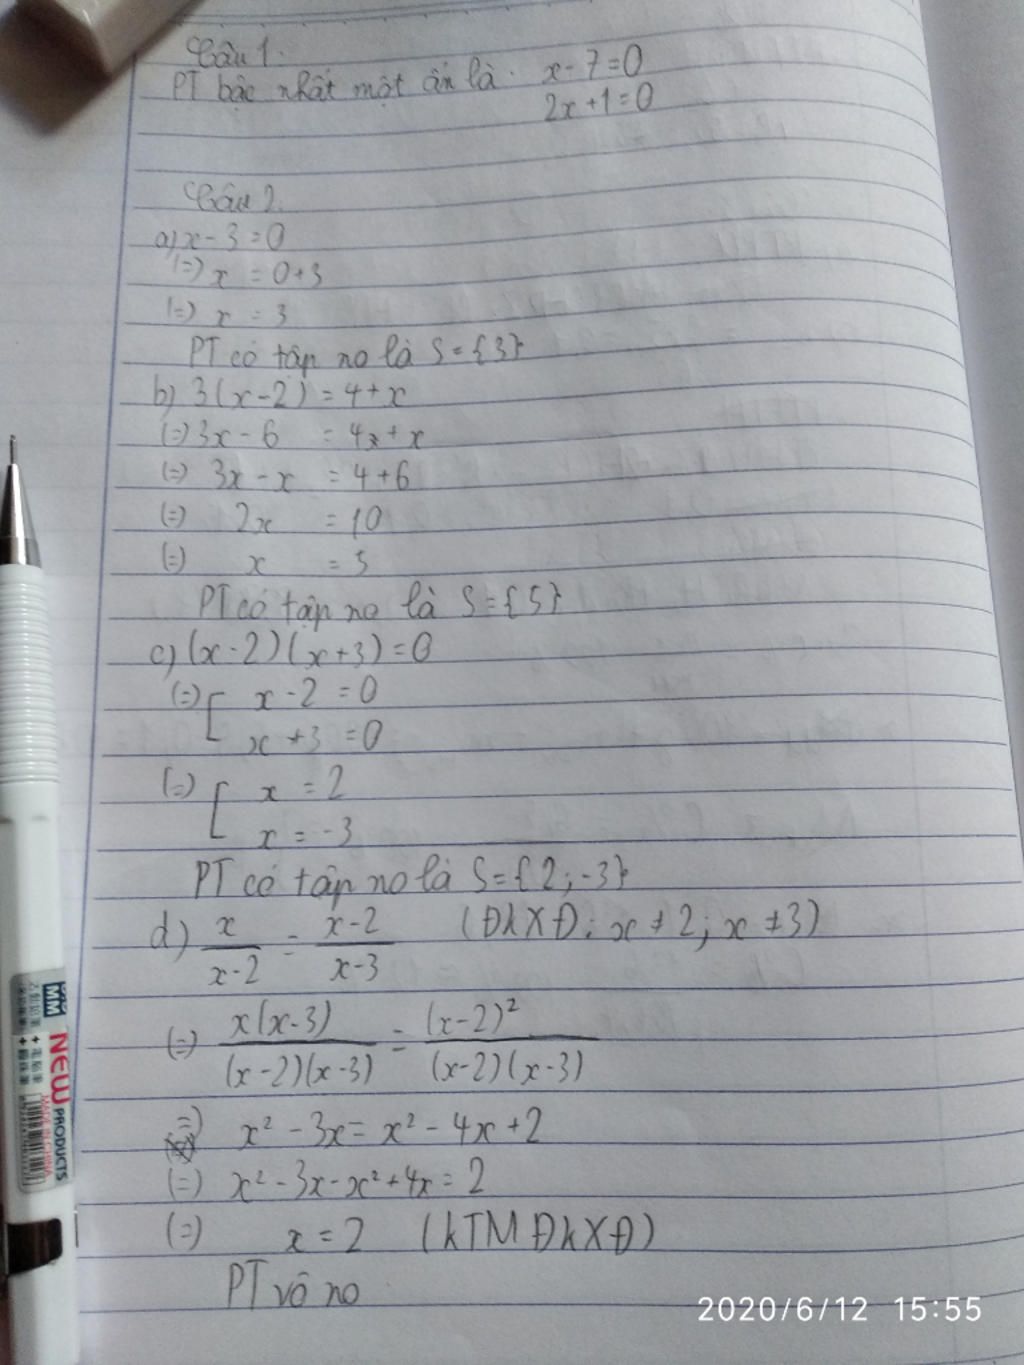 Câu 1.
PT bậc nhất một ẩn là. x-7=0
2x+1=0
Câu 2.
a) x-3=0
(=) x = 0+3
(=) x = 3
PT có tập no là S={3}
b) 3(x-2)=4+x
(=) 3x-6 = 4+x
(=) 3x-x = 4+6
(=) 2x = 10
(=) x = 5
PT có tập no là S={5}
c) (x-2)(x+3)=0
(=) [ x-2=0
x+3=0
(=) [ x=2
x=-3
PT có tập no là S={2;-3}
d) x/(x-2) = (x-2)/(x-3) (ĐkXĐ: x≠2; x≠3)
(=) x(x-3)/((x-2)(x-3)) = (x-2)²/((x-2)(x-3))
=) x²-3x=x²-4x+2
(=) x²-3x-x²+4x=2
(=) x=2 (kTM ĐkXĐ)
PT vô no
MM
NEW
PRODUCTS
MADE IN CHINA
2020/6/12 15:55